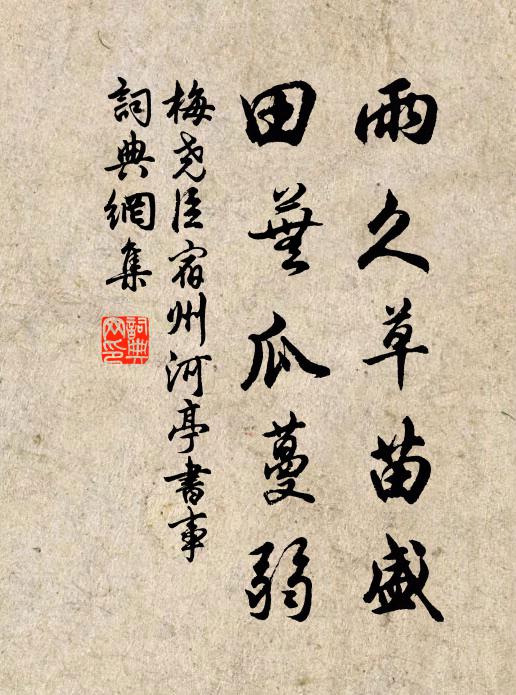 雨久草苗盛
田蕪瓜蔓弱
梅尧臣宿州河亭書事
詞典網集
詞典网印